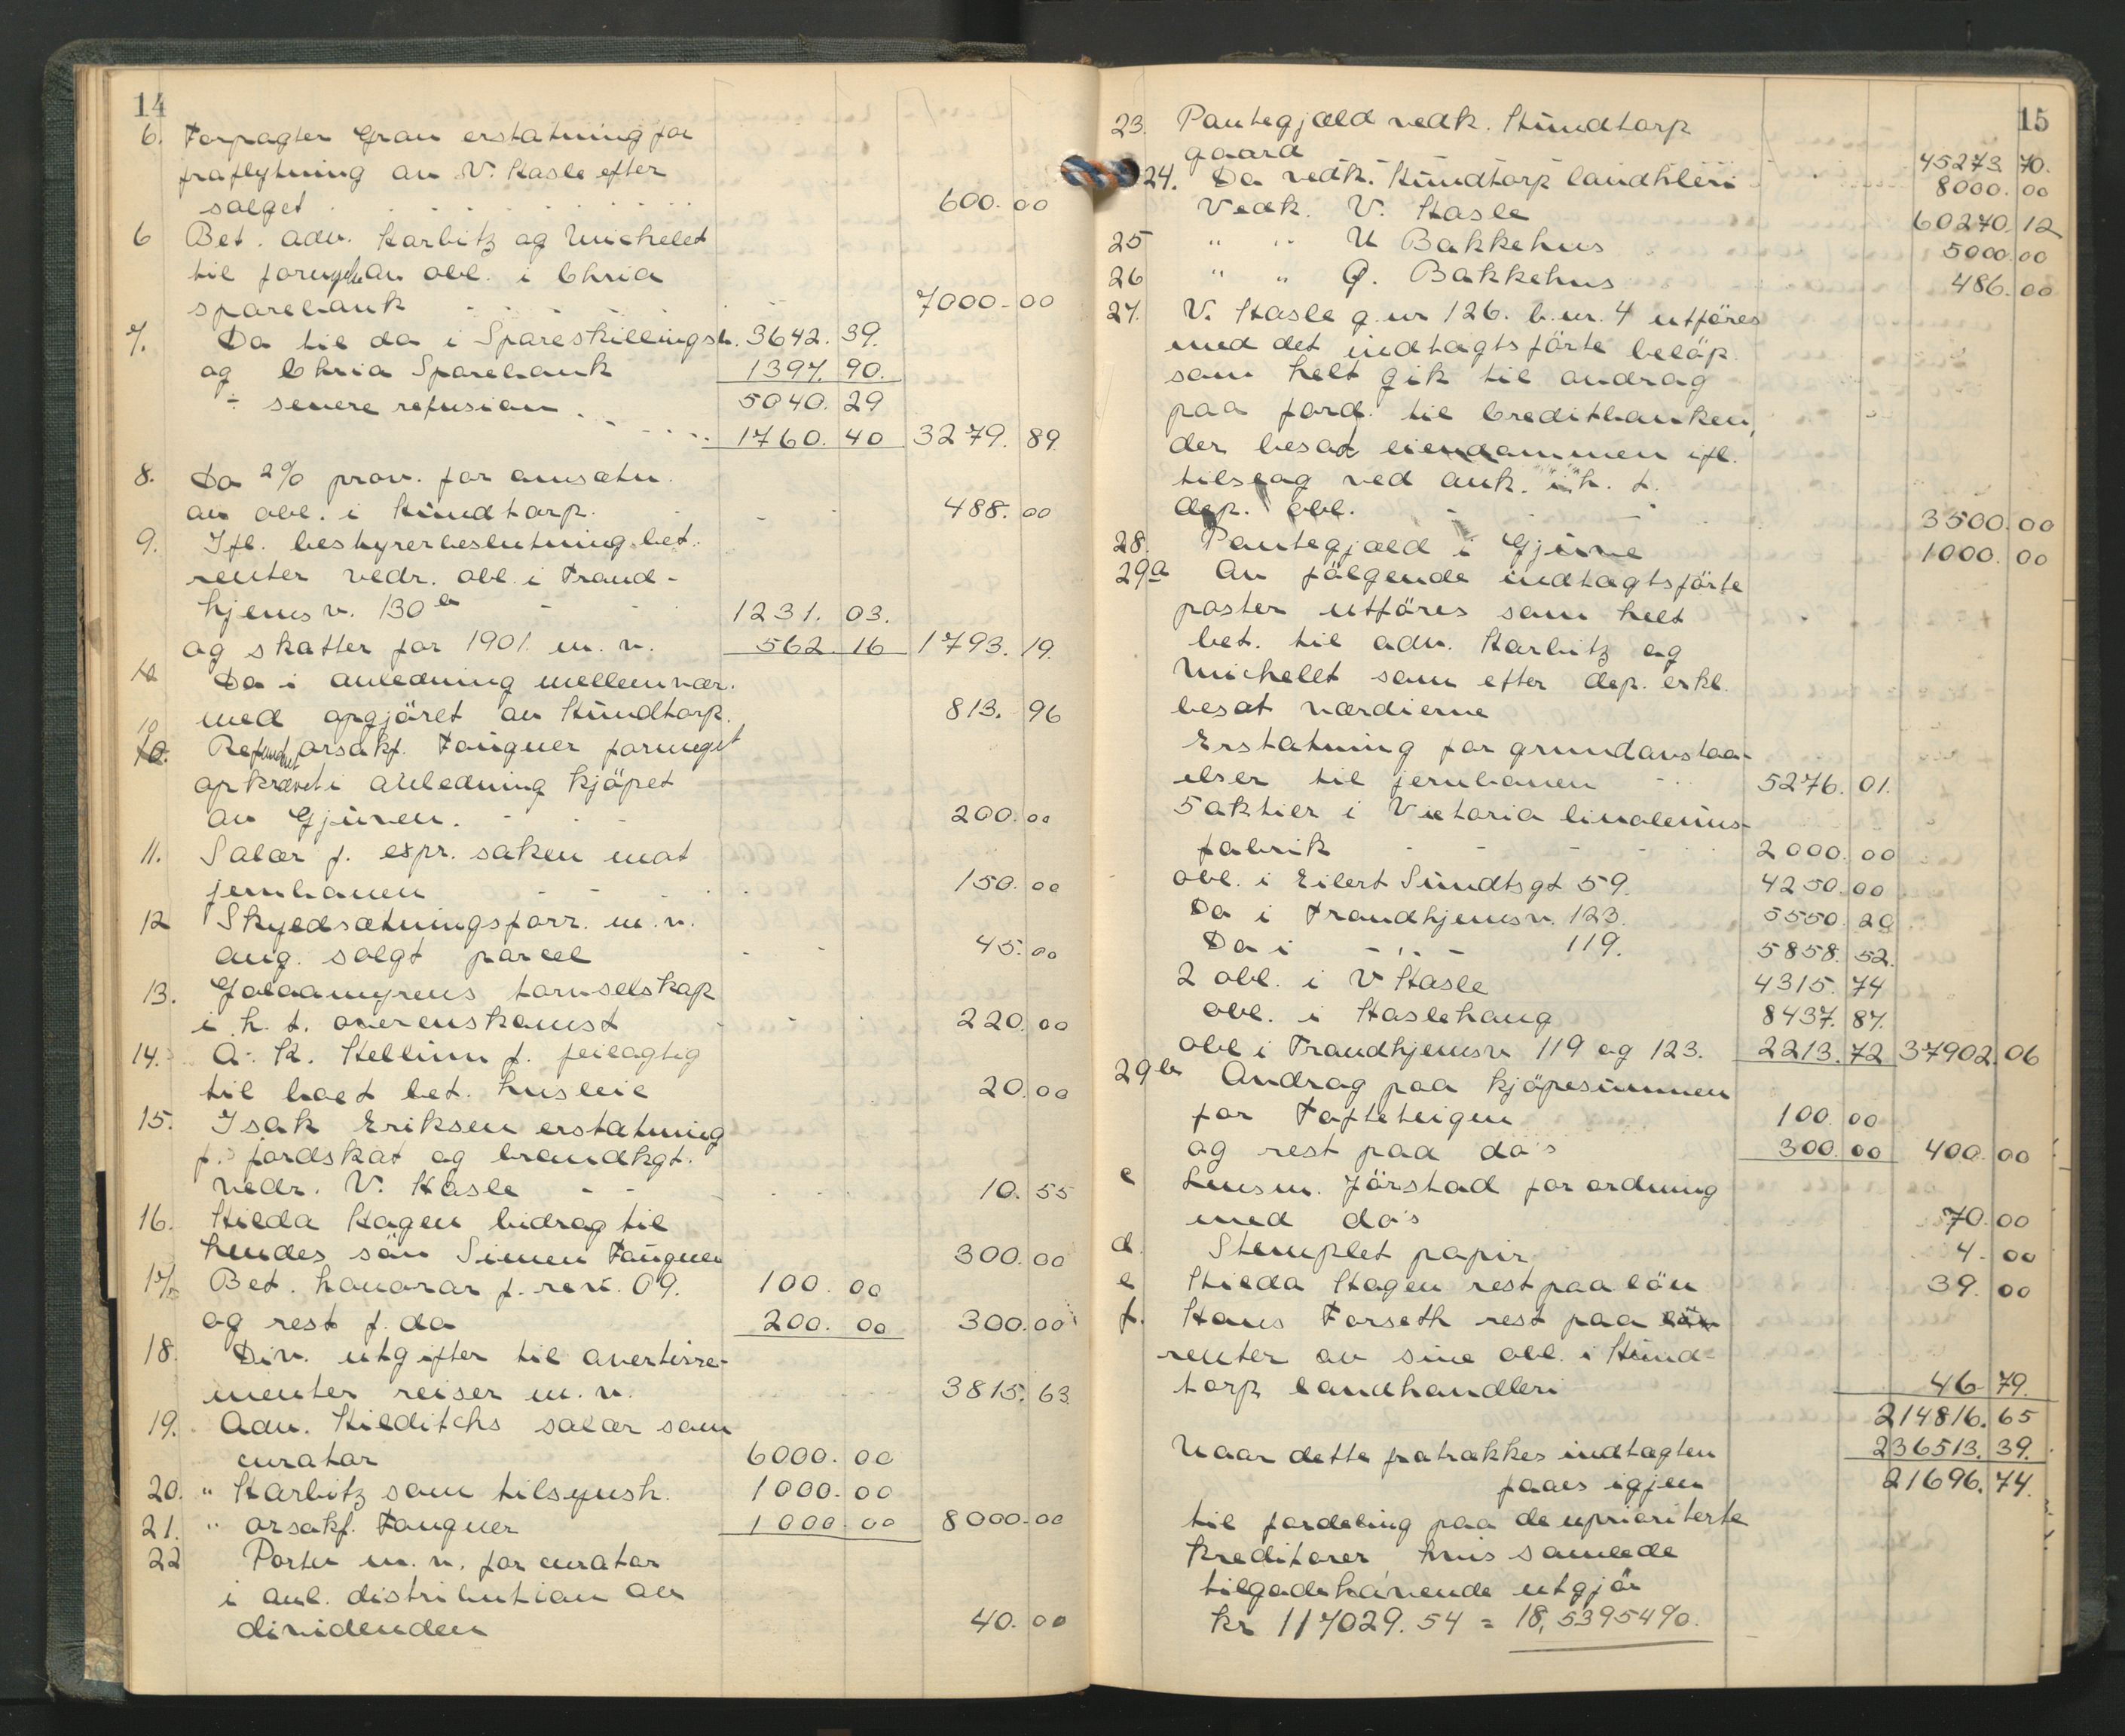 14
6. Forpagter Gran erstatning for
fraflytning av V. Hasle efter
salget 600.00
6 Bet. adv. Harbitz og Michelet
til fornyelse av obl. i Chria
sparebank 7000.00
7. Do til do i Spareskillingsb. 3642.39.
og Chria Sparebank 1397.90.
÷ senere refusion 5040.29
1760.40 3279.89
8. Do 2% prov. for omsætn.
av obl. i Hundtorp. 488.00
9. Ifl. bestyrerbeslutning bet.
renter vedr. obl. i Trond-
hjems v. 130 b 1231.03.
og skatter for 1901 m. v. 562.16 1793.19.
Do i anledning mellemvær.
med opgjöret av Hundtorp. 813.96
10. Refundert orsakf. Fougner formeget
opkrævet i anledning kjöpet
av Gjüven. 200.00
11. Salær f. expr. saken mot
jernbanen 150.00
12 Skyldsætningsforr. m. v.
ang. solgt parcel 45.00
13. Golaamyrens torvselskap
i h. t. overenskomst 220.00
14. A. K. Hellum f. feilagtig
til boet bet. husleie 20.00
15. Isak Eriksen erstatning
f. jordskat og brandkgt.
vedr. V. Hasle 10.55
16. Hilda Hagen bidrag til
hendes sön Simen Fougner 300.00
17 Bet. honorar f. rev. 09. 100.00
og rest f. do 200.00 300.00
18. Div. utgifter til avertisse-
menter reiser m. v. 3815.63
19. Adv. Hilditchs salær som
curator 6000.00
20. " Harbitz som tilsynsh. 1000.00
21. " orsakf. Fougner 1000.00 8000.00
22 Porto m. v. for curator
i anl. distribution av
dividenden 40.00
15
23. Pantegjæld vedk. Hundtorp
gaard 45273.70.
24. Do vedk. Hundtorp landhleri 8000.00
Vedk. V. Hasle 60270.12
25 " " N Bakkehus 5000.00
26 " " Ø. Bakkehus 486.00
27. V. Hasle g. nr 126. b. nr. 4 utföres
med det indtagtsförte belöp.
som helt gik til avdrag
paa ford. til Creditbanken,
der besat eiendommen ifl.
tilslag ved auk. i h. t.
dep. obl. 3500.00
28. Pantegjæld i Gjüve 1000.00
29a Av fölgende indtægtsförte
poster utföres som helt
bet. til adv. Harbitz og
Michellt som efter dep. erkl.
besat værdierne
Erstatning for grundavstaa-
elser til jernbanen 5276.01.
5 aktier i Victoria linoleums-
fabrik 2000.00
obl. i Eilert Sundtsgt 59. 4250.00
Do i Trondhjemsv. 123. 5550.20
Do i - " - 119. 5858.52.
2 obl. i V Hasle 4315.74
obl. i Haslehaug 8437.87.
obl i Trondhjemsv 119 og 123. 2213.72 37902.06
29b Avdrag paa kjöpesummen
for Tofteteigen 100.00
og rest paa do's 300.00 400.00
c Lensm. Jörstad for ordning
med do's 70.00
d. Stemplet papir 4.00
e Hilda Hagen rest paa lön 39.00
f. Hans Forseth rest paa lön
renter av sine obl. i Hund-
torp landhandleri 46.79.
214816.65
Naar dette fratrækkes indtægten 236513.39.
faaes igjen 21696.74.
til fordeling paa de uprioriterte
kreditorer hvis samlede
tilgodehavende utgjör
kr 117029.54 = 18,539549%.